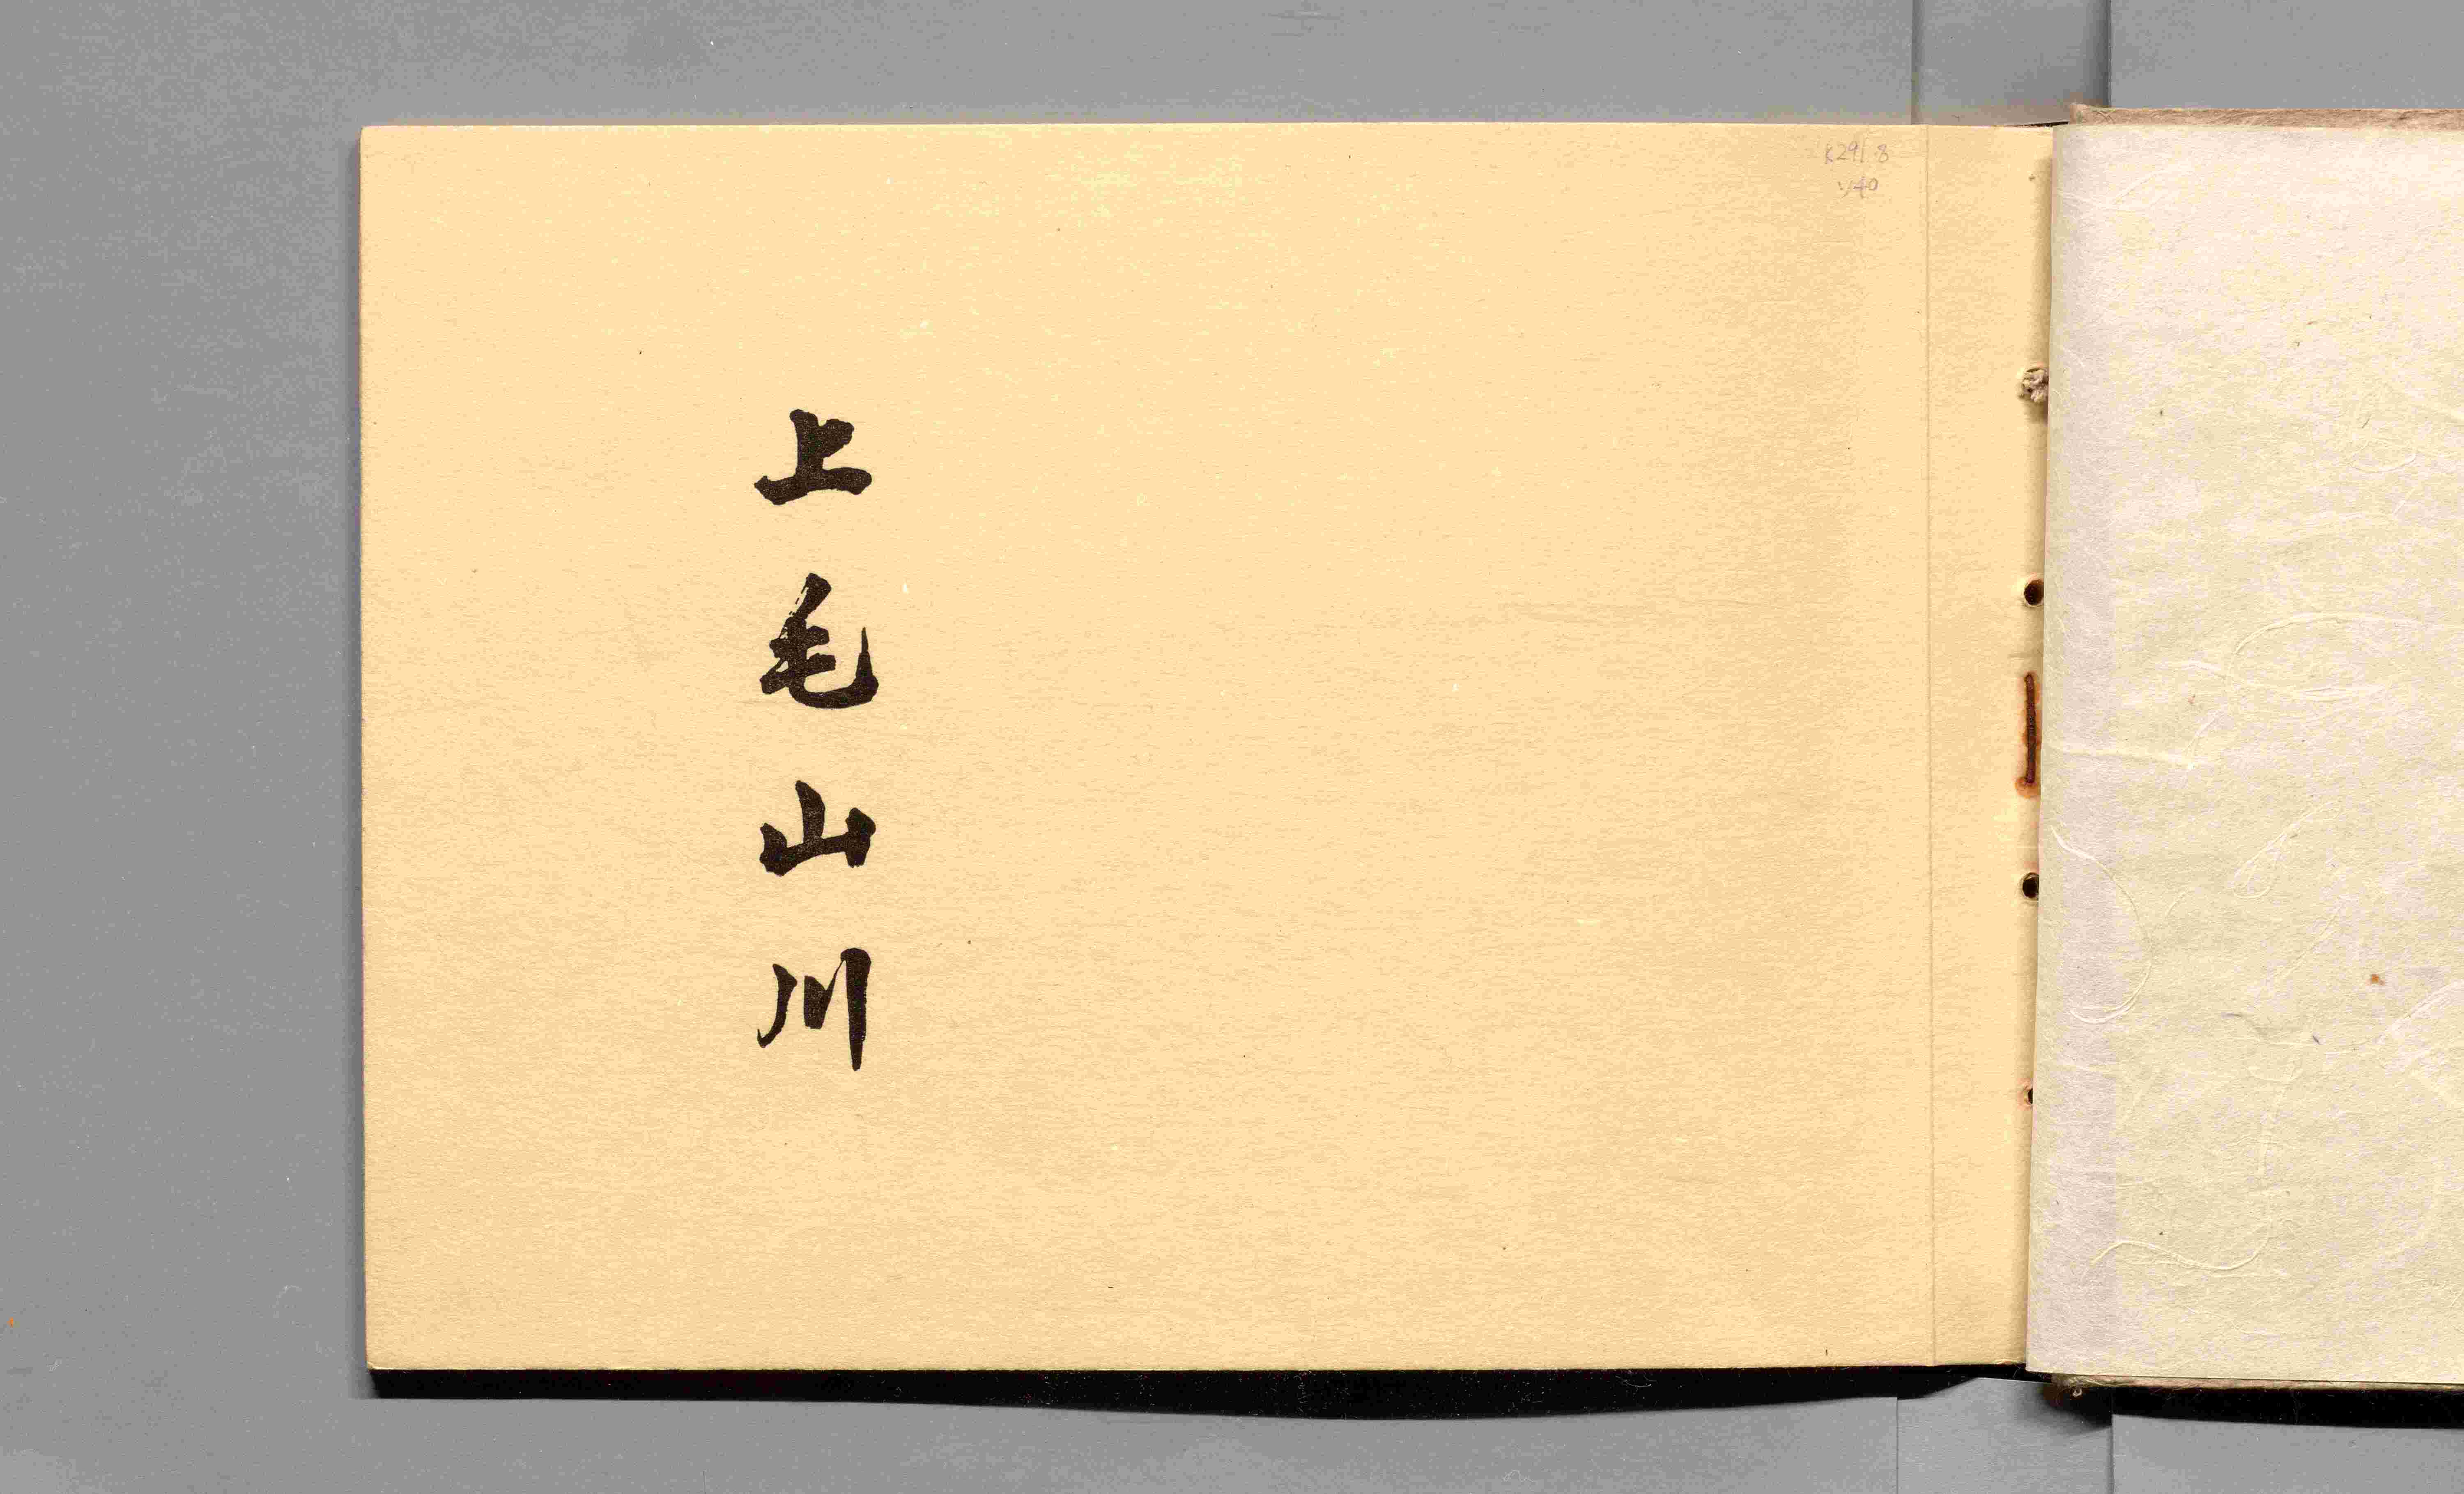 上毛山川
K291.8